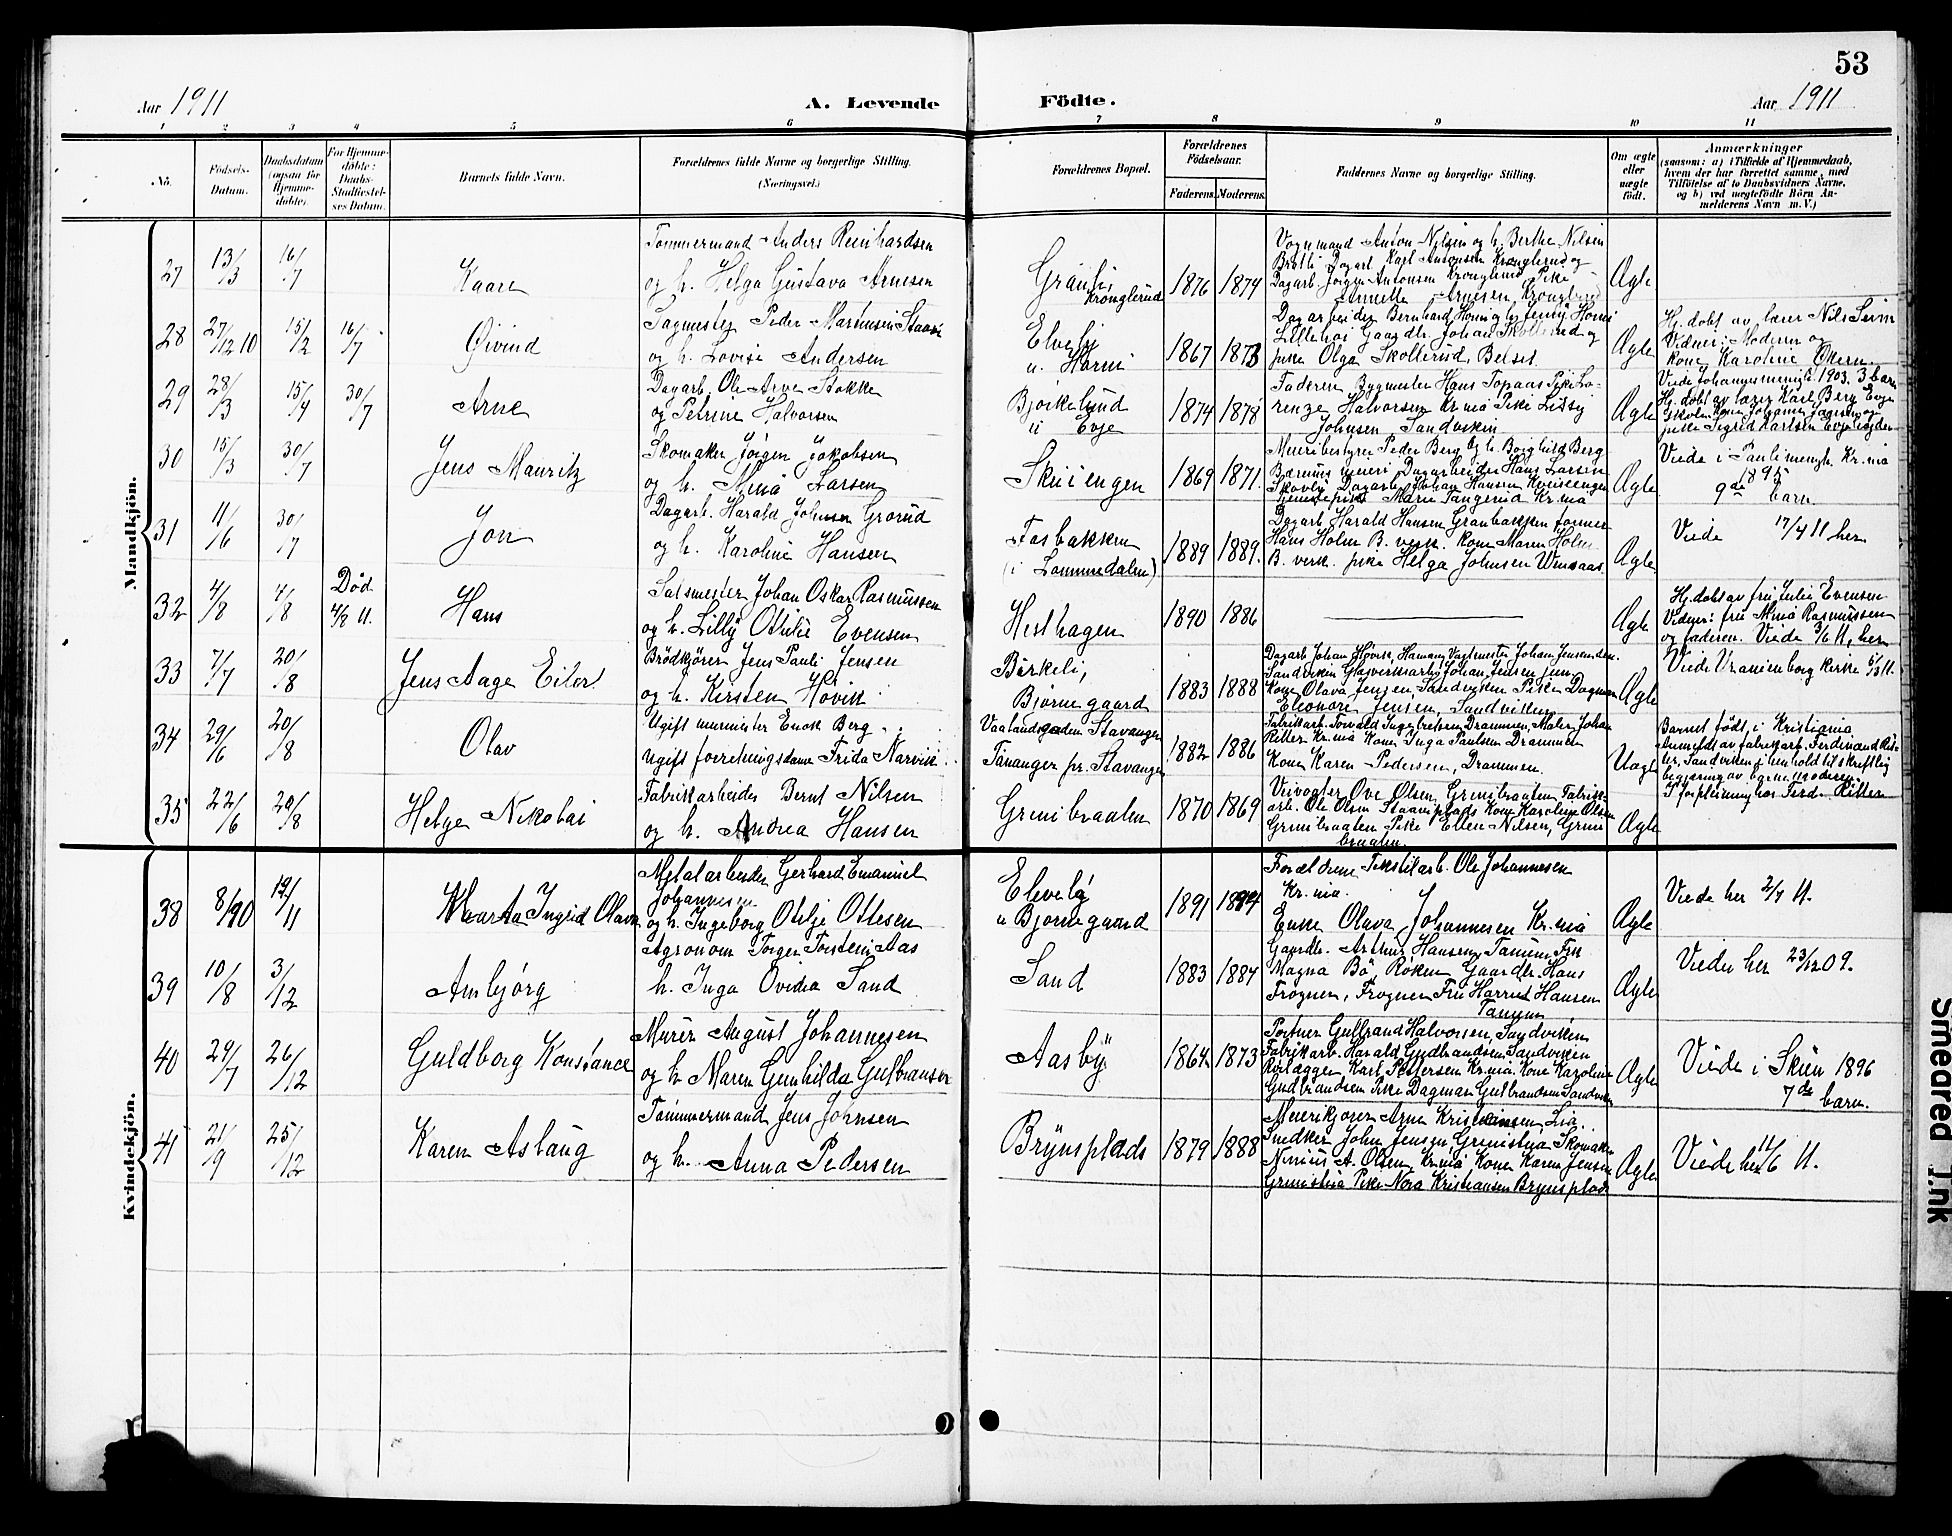 53
Aar 1911
A. Levende
Födte.
Aar 1911
1 2 3 4 5 6 7 8 9 10 11
No.
Födsels-
Datum.
Daabsdatum
(ogsaa for
Hjemme-
döbte).
For Hjemme-
döbte:
Daabs-
Stadfæstel-
ses Datum.
Barnets fulde Navn.
Forældrenes fulde Navne og borgerlige Stilling.
(Næringsvei.)
Forældrenes Bopæl.
Forældrenes
Födselsaar.
Faderens. Moderens.
Faddernes Navne og borgerlige Stilling.
Om ægte
eller
uægte
födt.
Anmærkninger
(saasom: a) i Tilfælde af Hjemmedaab,
hvem der har forrettet samme, med
Tilföielse af to Daabsvidners Navne,
og b) ved uægtefödte Börn An-
melderens Navn m. V.)
Mandkjön.
27 13/3 16/7 Kaare
Tømmermand Anders Reinhardsen
og h. Helga Gustava Arnesen
Granli,
Kronglerud
1876 1874
Vognmand Anton Nilsen og h. Berthe Nilsen
Bratli Dagarb. Karl Antonsen Kronglerud og
Dagarb. Jørgen Antonsen Kronglerud Pike
Annette Arnesen, Kronglerud
Ægte
28 27/12 10 15/2 16/7 Øivind
Sagmester Peder Martinsen Staavi
og h. Lovise Andersen
Elveby
u. Horni
1867 1873
Dagarbeider Bernhard Horni og h. Jenny Horni
Lillehoi Gaardbr. Johan Skollerud og
pike Olga Skollerud, Belset
Ægte
Hj. døbt av lærer Nils Seim
Vidner: Moderen og
kone Karoline Økern.
29 28/3 15/4 30/7 Arne
Dagarb. Ole Arve Stokke
og Petrine Halvorsen
Bjørkelund
u Evje
1874 1878
Faderen Bygmester Hans Topaas Pike Lo-
renze Halvorsen Kr.nia Pike Lissy
Johnsen Sandviken
Ægte
Viede Johannesmenigh. 1903. 3 barn
Hj. døbt av lærer Karl Berg Evje
pike Sigrid Karlsen Evje
30 15/3 30/7 Jens Mauritz
Skomaker Jörgen Jakobsen
og h. Mina Larsen
Skuiengen
1869 1871
Meieribestyrer Peder Berg og h. Borghild Berg
Bærums meieri, Dagarbeider Hans Larsen
Skovby Dagarb. Johan Hansen
Tjenestepike Marie Tangerud Kr.nia
Ægte
Viede i Paulimenigh. Kr.nia
1895
9de barn
31 11/6 30/7 Jon
Dagarb. Harald Johnsen Grorud
og h. Karoline Hansen
Fosbakken
(i Lommedalen)
1889 1889.
Dagarb. Harald Hansen Granbakken former
Hans Holm B. verk. Kone Maren Holm
B. verk. pike Helga Johnsen Wensaas
Ægte
Viede 17/4 11 her
32 4/8 4/8 Død
4/8 11. Hans
Salsmester Johan Oskar Rasmussen
og h. Lilly Otilie Evensen
Hesthagen
1890 1886
Ægte
Hj. døbt av fru Julie Evensen
Vidner: fru Mina Rasmussen
og faderen. Viede 3/6 11, her
33 7/7 20/8 Jens Aage Eiler
Brödkjörer Jens Pauli Jensen
og h. Kirsten Hövik
Birkeli,
Bjørnegaard
1883 1888
Dagarb Johan Høvik, Hamang Vagtmester Johan Jensen sen.
Sandviken Glasverksarb. Johan Jensen jun.
Kone Olava Jensen, Sandviken Pike Dagmar
Eleonore Jensen, Sandviken
Ægte
Viede Uranienborg kirke 5/3 11.
34 29/6 20/8 Olav
Ugift murmester Enok Berg
Ugift forretningsdame Frida Narvik
Vaalandsgaden Stavanger
Tananger pr. Stavanger
1882 1886
Fabrikarb. Torvald Ingebretsen Drammen, Maler Johan
Ritter Kr.nia Kone Inga Paulsen Drammen
Kone Karen Pedersen, Drammen.
Uægte
Barnet født i Kristiania
Anmeldt av fabrikarb. Ferdinand Rit-
ter, Sandviken i henhold til skriftlig
begjæring av barnemoderen.
I forpleining hos Ferd. Ritter
35 22/6 20/8 Helge Nikolai
Fabrikarbeider Bernt Nilsen
og h. Andrea Hansen
Grinibraaten
1870 1869
Veivogter Ove Olsen, Grinibraaten Fabrik-
arb. Ole Olsen Staaviplads Kone Karoline Olsen
Grinibraaten Pike Ellen Nilsen, Grini
braaten
Ægte
Kvindekjön.
38 8/10 19/11 Marta Ingrid Olava
Metalarbeider Gerhard Emanuel
Johannesen
og h. Ingeborg Otilje Ottesen
Elveby
u Bjørnegaard
1891 1894
Forældrene Tekstilarb. Ole Johannesen
Kr.nia.
Enke Olava Johannesen Kr.nia
Ægte
Viede her 2/7 11.
39 10/8 3/12 Ambjörg
Agronom Torger Torstein Aas
h. Inga Ovidia Sand
Sand
1883 1884
Gaardbr. Arthur Hansen, Tanum Frk
Magna Bö, Röken Gaardbr. Hans
Frogner, Frogner Fru Harriet Hansen
Tanum
Ægte
Viede her 23/12 09.
40 29/7 26/12 Guldborg Konstance
Murer August Johannesen
og h. Maren Gunhilda Gulbransen
Aasby
1864 1873
Portner Gulbrand Halvorsen, Sandviken
Fabrikarb. Harald Gudbrandsen Sandviken
Rørlægger Karl Pettersen Kr.nia Kone Karoline
Gudbrandsen Pike Dagmar Gulbrandsen Sandviken
Ægte
Viede i Skien 1896
7de barn.
41 21/9 25/12 Karen Aslaug
Tømmermand Jens Johnsen
og h. Anna Pedersen
Brynsplads
1879 1888
Meierikjører Arne Kristiansen Lia
Snedker John Jensen Grinistua Skomaker
A. Olsen Kr.nia Kone Karen Jensen
Grinistua Pike Nora Kristiansen Brynsplads
Ægte
Viede her 11/6 11.
Smeared Ink